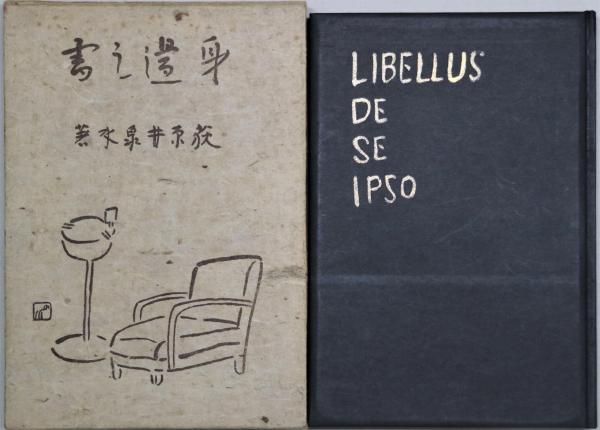 身邊之書
荻原井泉水著
LIBELLUS
DE
SE
IPSO